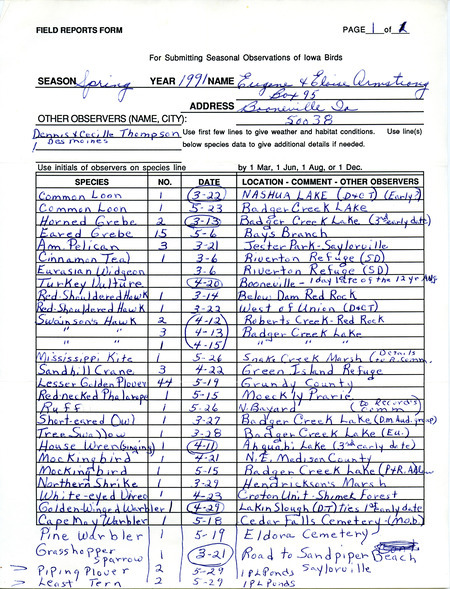 FIELD REPORTS FORM PAGE 1 of 2
For Submitting Seasonal Observations of Iowa Birds
SEASON Spring YEAR 1991 NAME Eugene & Eloise Armstrong
Box 95
ADDRESS Booneville Ia
OTHER OBSERVERS (NAME, CITY): 50038
Dennis & Cecille Thompson Use first few lines to give weather and habitat conditions. Use line(s)
Des Moines below species data to give additional details if needed.
Use initials of observers on species line by 1 Mar, 1 Jun, 1 Aug, or 1 Dec.
SPECIES NO. DATE LOCATION - COMMENT - OTHER OBSERVERS
Common Loon 1 3-22 NASHUA LAKE (D+CT) (Early?)
Common Loon 1 5-23 Badger Creek Lake
Horned Grebe 2 3-13 Badger Creek Lake (3rd early date)
Eared Grebe 15 5-6 Bays Branch
Am. Pelican 3 3-21 Jester Park-Saylorville
Cinnamon Teal 1 3-6 Riverton Refuge (SD)
Eurasian Widgeon 3-6 Riverton Refuge (SD)
Turkey Vulture 4-20 Booneville - 1 day late of the 12 yr Avg
Red-Shouldered Hawk 1 3-14 Below Dam Red Rock
Red-Shouldered Hawk 3-22 West of Union (D+CT)
Swainson's Hawk 2 4-12 Roberts Creek-Red Rock
" " 3 4-13 Badger Creek Lake
" " 1 4-15 " " "
Mississippi Kite 1 5-26 Snake Creek Marsh (Details to R. Comm.
Sandhill Crane 3 4-22 Green Island Refuge
Lesser Golden Plover 44 5-19 Grundy County
Rednecked Phalarope 1 5-15 Moeckly Prarie
Ruff 1 5-26 N. Bayard (to Records Comm)
Short-eared Owl 1 3-27 Badger Creek Lake (Dm Aud. group)
Tree Swallow 1 3-28 Badger Creek Lake (Eu.)
House Wren (Singing) 1 4-11 Ahquabi Lake (3rd early date)
Mockingbird 1 4-21 N.E. Madison County
Mockingbird 1 5-15 Badger Creek Lake
Northern Shrike 1 3-29 Hendrickson's Marsh
White-eyed Vireo 1 4-23 Croton Unit-Shimek Forest
Golden-Winged Warbler 1 4-29 Lakin Slough (DT) ties 1st early date
Cape May Warbler 1 5-18 Cedar Falls Cemetery (M.ob.)
Pine Warbler 1 5-19 Eldora Cemetery
Grasshopper Sparrow 1 3-21 Road to Sandpiper Beach
Saylorville
Piping Plover 2 5-29 IPL Ponds
Least Tern 2 5-29 IPL Ponds